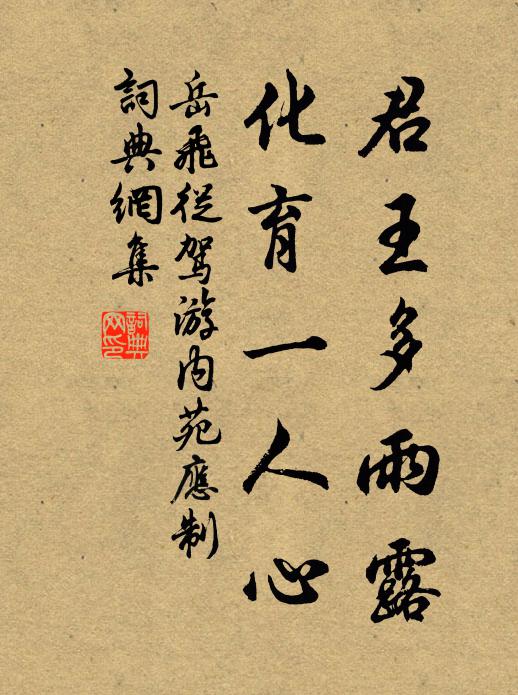 君王多雨露
化育一人心
岳飛從駕游内苑應制
詞典網集
詞典網印